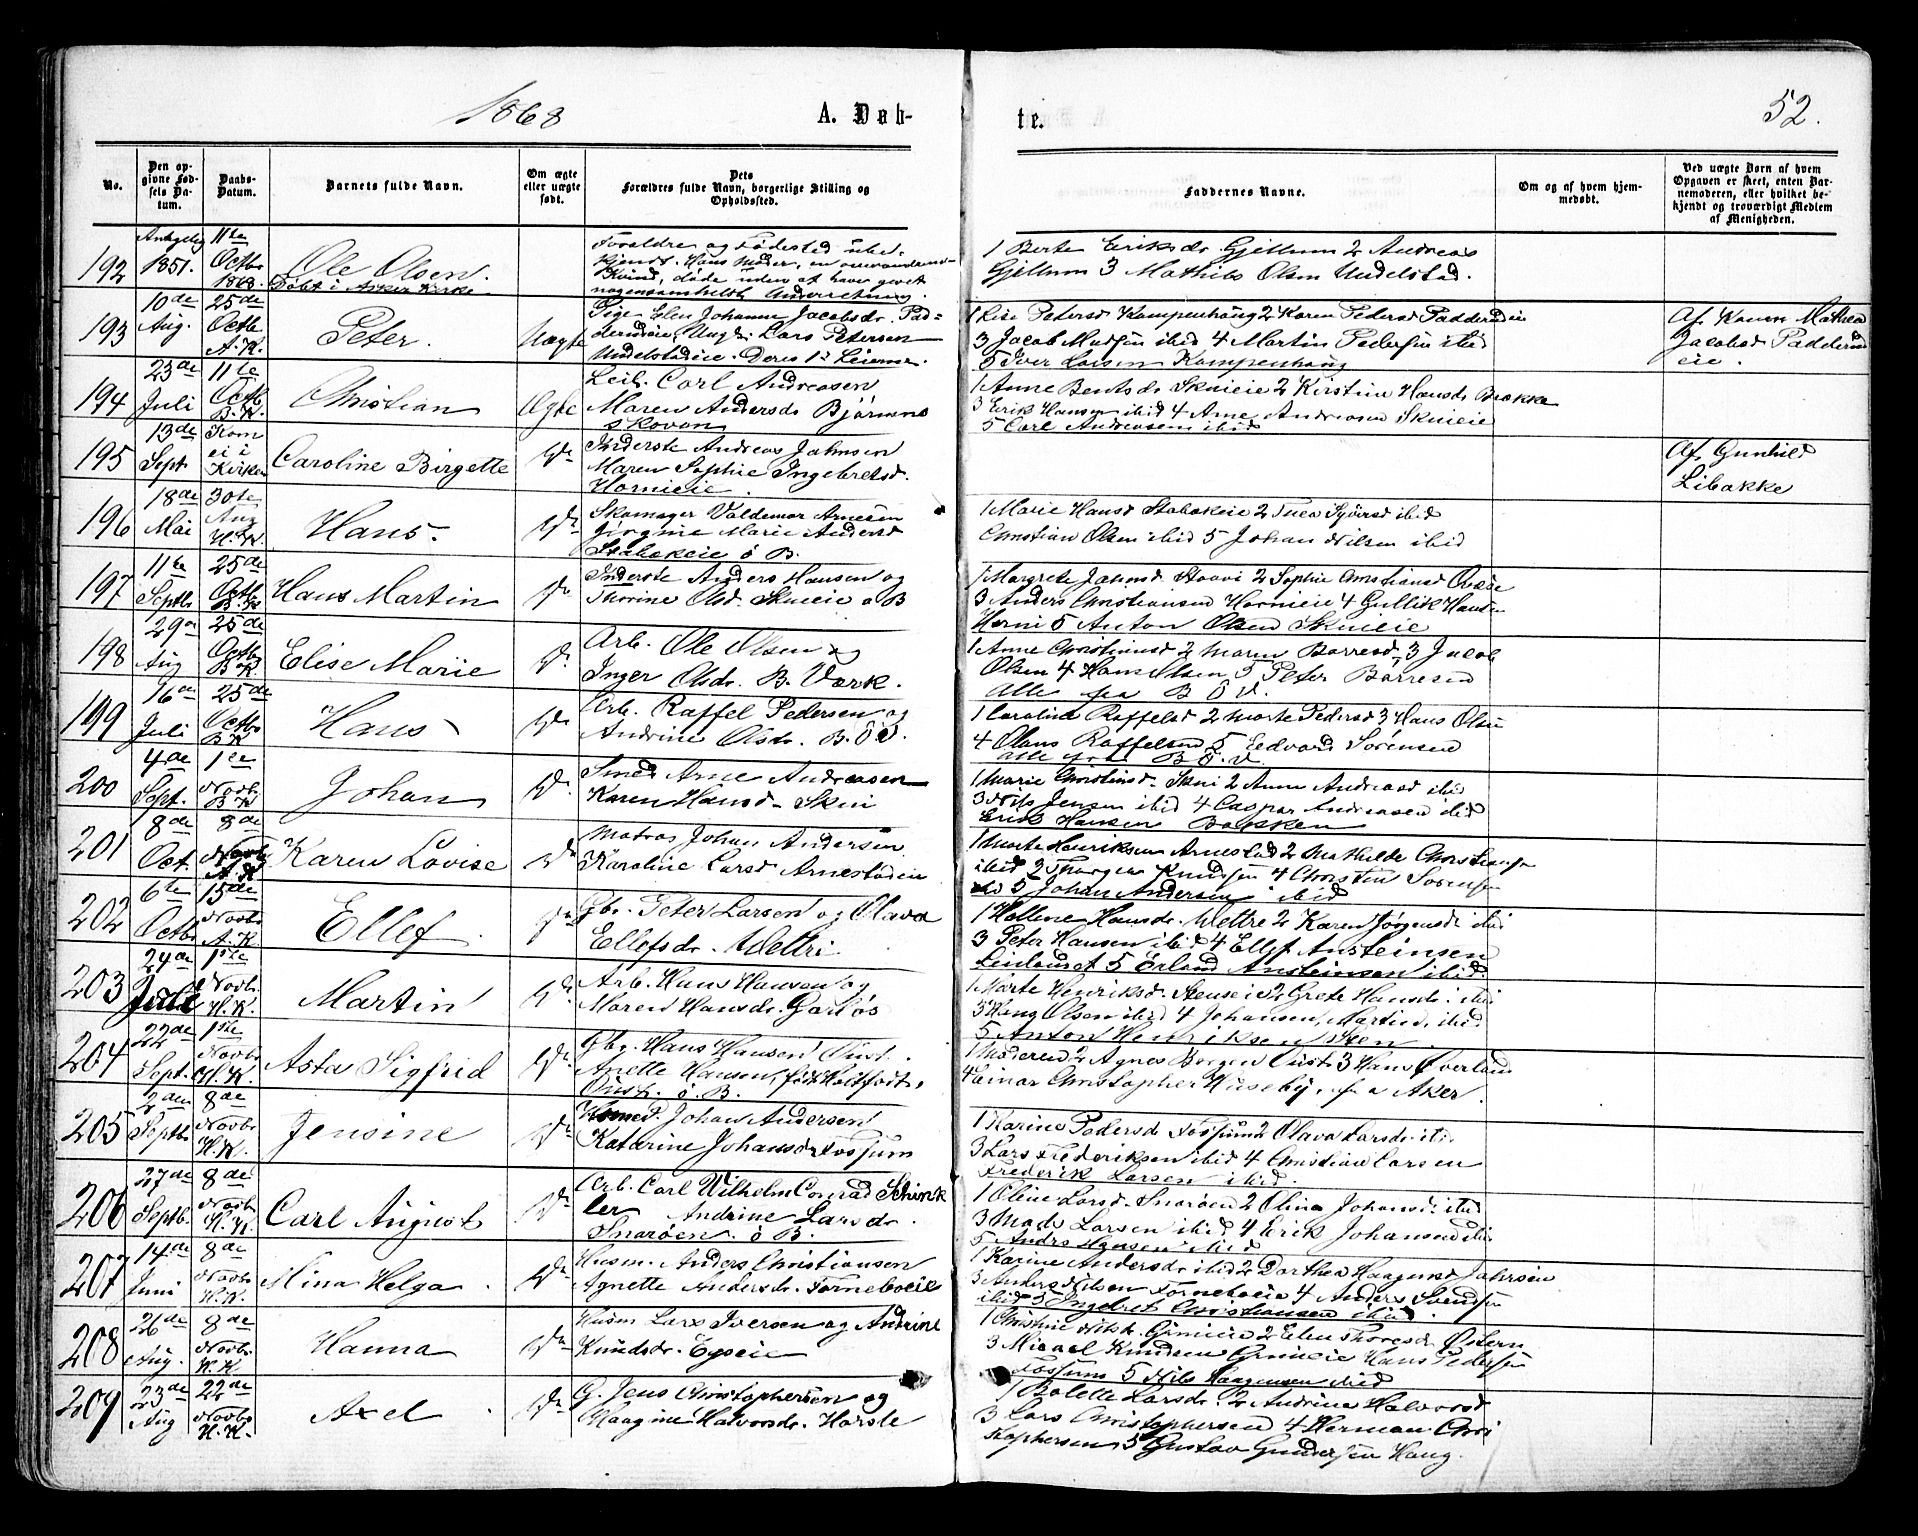 1868
A. Døb-
te.
52.
No.
Den op-
givne Fød-
sels Da-
tum.
Daabs-
Datum.
Barnets fulde Navn.
Om ægte
eller uægte
født.
Dets
Forældres fulde Navn, borgerlige Stilling og
Opholdssted.
Faddernes Navne.
Om og af hvem hjem-
medøbt.
Ved uægte Børn af hvem
Opgaven er skeet, enten Bar-
nemoderen, eller hvilket be-
kjendt og troværdigt Medlem
af Menigheden.
192
1851.
11te
Octbr
1868.
Ole Olsen.
Døbt i Asker Kirke
Forældre og Fødested ube-
kjendt. Hans Moder, en omvandrende
Kvind, døde uden at have givet
nogensomhelst Underretning.
1 Berte Eriksdr. Gjellum 2 Andreas
Gjellum 3 Mathis Olsen Undelstad.
193
10de
Aug.
25de
Octb.
A.K.
Peter.
Uægte
Pige Elen Johanne Jacobsdr. Pad-
derudeie, Ungk. Lars Petersen
Undelstadeie. Deres 1ste Leierm.
1 Lise Petersd Kampenhaug 2 Karen Pedersd Padderudeie
3 Jacob Madsen ibid 4 Martin Pedersen ibid
5 Iver Larsen Kampenhaug
Af Karen Mathea
Jacobsd Padderud
eie.
194
23de
Juli
11te
Octb.
B.K.
Christian
Ægte
Leil. Carl Andreasen
Maren Andersdr Bjørnne
skoven
1 Anne Bentsdr Skuieie 2 Kirstine Hansdr Brække
3 Erik Hansen ibid 4 Arne Andreasen Skuieie
5 Carl Andreasen ibid
195
13de
Sept.
Kom
ei i
Kirken
Caroline Birgette
Do
Inderste Andreas Johnsen
Maren Sophie Ingebretsd.
Hornieie.
Af Gunhild
Libakke
196
18de
Mai
30te
Aug
H.K.
Hans.
Do
Skomager Valdemar Arnesen
Jørgine Marie Andersd
Stabækeie ö B.
1 Marie Hansd Stabækeie 2 Thea Syversd ibid
Christian Olsen ibid 5 Johan Nilsen ibid
197
11te
Septb.
25de
Octb.
B.K.
Hans Martin
Do
Inderste Anders Hansen og
Thorine Olsd. Skuieie ö B
3 Anders Christiansen Hornieie 4 Gullik Hansen
Horni 5 Anton Olsen Skuieie
198
29de
Aug
25de
Octb.
B.K.
Elise Marie
Do
Arb. Ole Olsen og
Inger Olsdr. B. Værk.
1 Anne Christiansd 2 Maren Borresd, 3 Jacob
Olsen 4 Hans Olsen 5 Peter Borresen
Alle fra B Ö V.
199
16de
Juli
25de
Octb.
B.K
Hans
Do
Arb. Raffel Pedersen og
Andrine Olsdr. B. Ö V.
1 Caroline Raffelsd 2 Marte Pedersd 3 Hans Olsen
4 Olaus Raffelsen 5 Edvard Sørensen
alle fra B. Ö. V.
200
4de
Sept.
1ste
Novb.
B K
Johan
Do
Smed Arne Andreasen
Karen Hansd. Skui
1 Marie Christiansd. Skui 2 Anne Andreasd ibid
3 Nils Jensen ibid 4 Caspar Andreasen ibid
Erik Hansen Bakken
201
8de
Oct.
8de
Novb
A.K
Karen Lovise
Do
Matros Johan Andersen
Karoline Larsd Arnestadeie
1 Marte Henriksen Arnestad 2 Mathilde Christensen
ibid 2 Thorgen Knudsen 4 Christen Sørensen
ibid 5 Johan Andersen ibid
202
6te
Octbr
15de
Novbr
A.K
Ellef.
Do
Gbr. Peter Larsen og Olava
Ellefsdr. Vettri.
1 Hellene Hansdr. Vettre 2 Karen Jørgensd. ibid
3 Peter Hansen ibid 4 Ellef Ansteinsen
5 Erland Ansteinsen ibid.
203
24de
Juli
1ste
Novbr.
H.K.
Martin
Do
Arb. Hans Hansen og
Maren Hansdr. Garløs
1 Marte Henriksd. Stenseie 2 Grete Hansdr. ibid
3 Hans Olsen ibid 4 Johansen, Martin, ibid
5 Anton Henriksen Steen.
204
22de
Sept.
1ste
Novbr.
H.K.
Asta Sigfrid
Do
Gbr. Hans Hansen Øust.
Anette Hansen, født Holtfodt,
Øust. ö. B.
1 Moderen 2 Agnes Borgen Øust 3 Hans Øverland
4 Einar Christopher Huseby, fra Aker.
205
2den
Septbr
8de
Novbr.
H.K.
Jensine
Do
Johan Andersen
Katarine Johansdr Fossum
1 Karine Pedersdr Fossum 2 Olava Larsdr. ibid
3 Lars Frederiksen ibid 4 Christian Larsen
Frederik Larsen ibid.
206
27de
Septb.
8de
Novbr.
H.K.
Carl August
Do
Arb. Carl Wilhelm Conrad Schink
ler Andrine Larsdr.
Snarøen. ö B.
1 Oline Larsd. Snarøen 2 Olina Johansd. ibid
3 Mads Larsen ibid 4 Erik Johansen ibid
5 Andrs Hansen ibid
207
14de
Juni
8de
Novbr.
H.K.
Mina Helga.
Do
Husm. Anders Christiansen
Agnette Andersdr. Forneboeie
1 Karine Andersdr ibid 2 Dorthea Haagensd Johrsøn
3 Anders Nilsen Forneboeie 4 Anders Svendsen
ibid 5 Ingebret Christiansen ibid.
208
26de
Aug.
8de
Novbr.
H.K.
Hanna
Do
Husm Lars Iversen og Andrine
Knudsdr. Eyseie
1 Christine Nilsd. Grinieie 2 Elen Thoresdr Østern
3 Micael Knudsen Grinieie Hans Pedersen
Fossum 5 Nils Haagensen ibid
209
23de
Aug
22de
Novbr.
H.K.
Axel.
Do
G. Jens Christophersen og
Maagine Halvorsdr. Hasle
1 Bolette Larsdr. 2 Andrine Halvorsd
3 Lars Christophersen 4 Herman Chri
stophersen 5 Gustav Gundersen Haug.